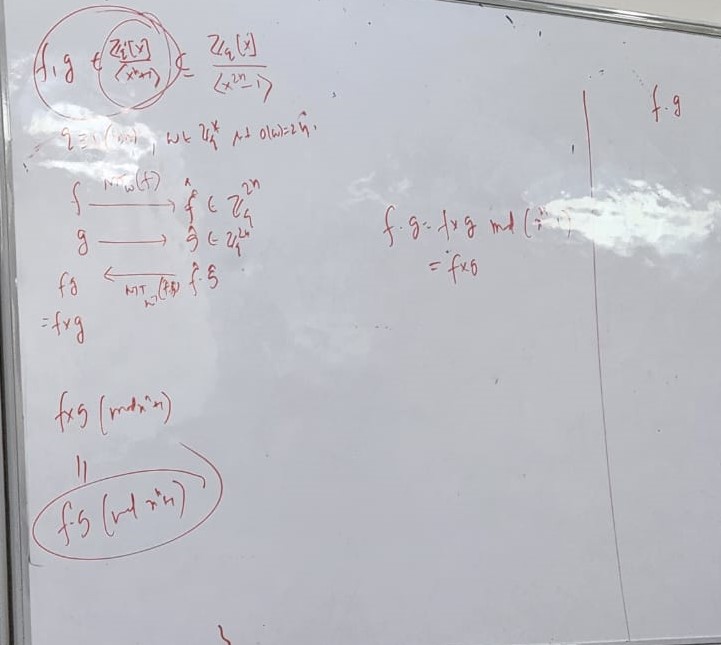 f, g ∈ ℤq[x] / ⟨xⁿ+1⟩ ⊆ ℤq[x] / ⟨x²ⁿ-1⟩
q ≡ 1, w ∈ ℤq* st o(w)=2n.
f —NTT_w(f)→ f̂ ∈ ℤq²ⁿ
g ⟶ ĝ ∈ ℤq²ⁿ
fg ⟵ f̂·ĝ
= f×g
f×g (mod xⁿ+1)
||
f·g (mod xⁿ+1)
f·g = f×g mod
= f×g
f·g